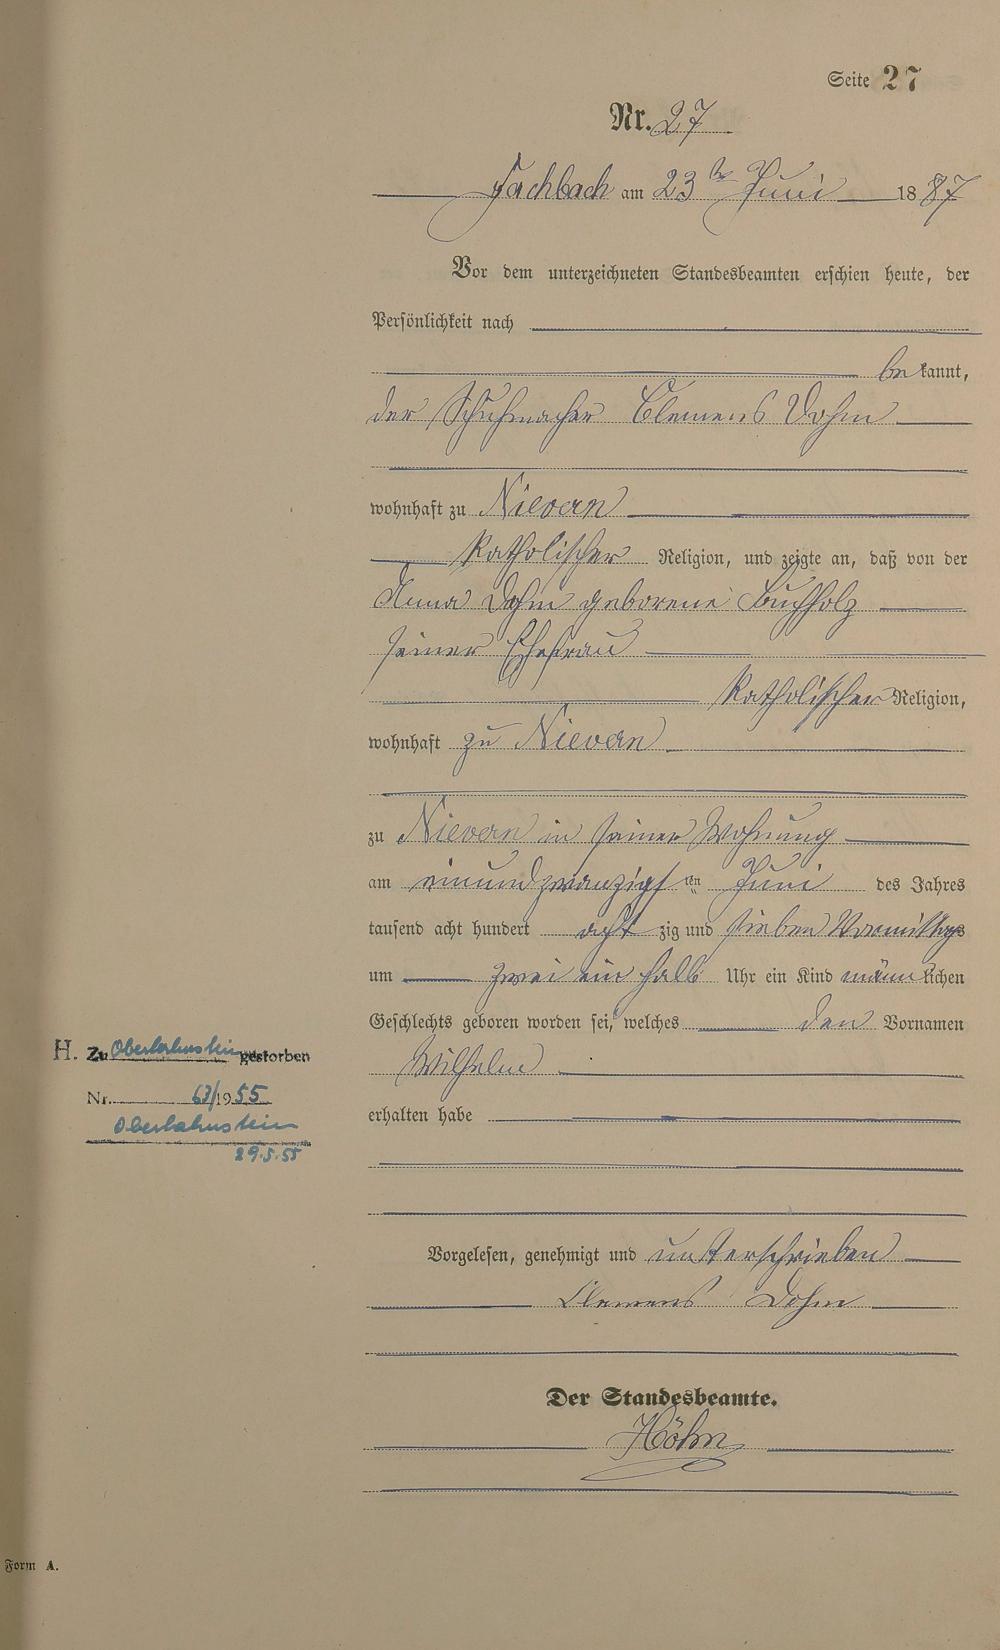 Seite 27
Nr. 27
Fachbach am 23ten Juni 1887
Vor dem unterzeichneten Standesbeamten erschien heute, der
Persönlichkeit nach
bekannt,
der Schuhmacher Clemens Dohm
wohnhaft zu Nievern
katholischer Religion, und zeigte an, daß von der
Anna Dohm geborene Buchholz
seiner Ehefrau
katholischer Religion,
wohnhaft zu Nievern
zu Nievern in seiner Wohnung
am einundzwanzigsten Juni des Jahres
tausend acht hundert achtzig und sieben Vormittags
um zwei ein halb Uhr ein Kind männlichen
Geschlechts geboren worden sei, welches den Vornamen
Wilhelm
erhalten habe
H. Zu Oberlahnstein gestorben
Nr. 63/1955
Oberlahnstein
29.5.55
Vorgelesen, genehmigt und unterschrieben
Clemens Dohm
Der Standesbeamte.
Höhn
Form A.